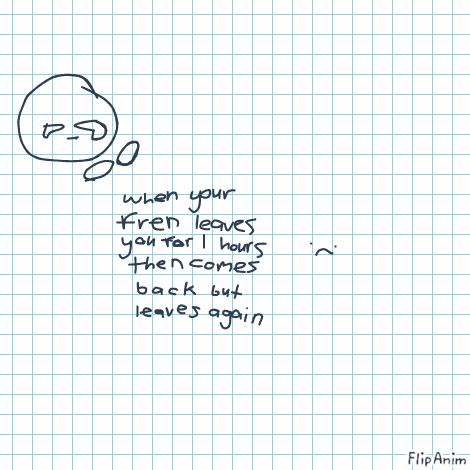 when your
fren leaves
you for 1 hours
then comes
back but
leaves again
FlipAnim